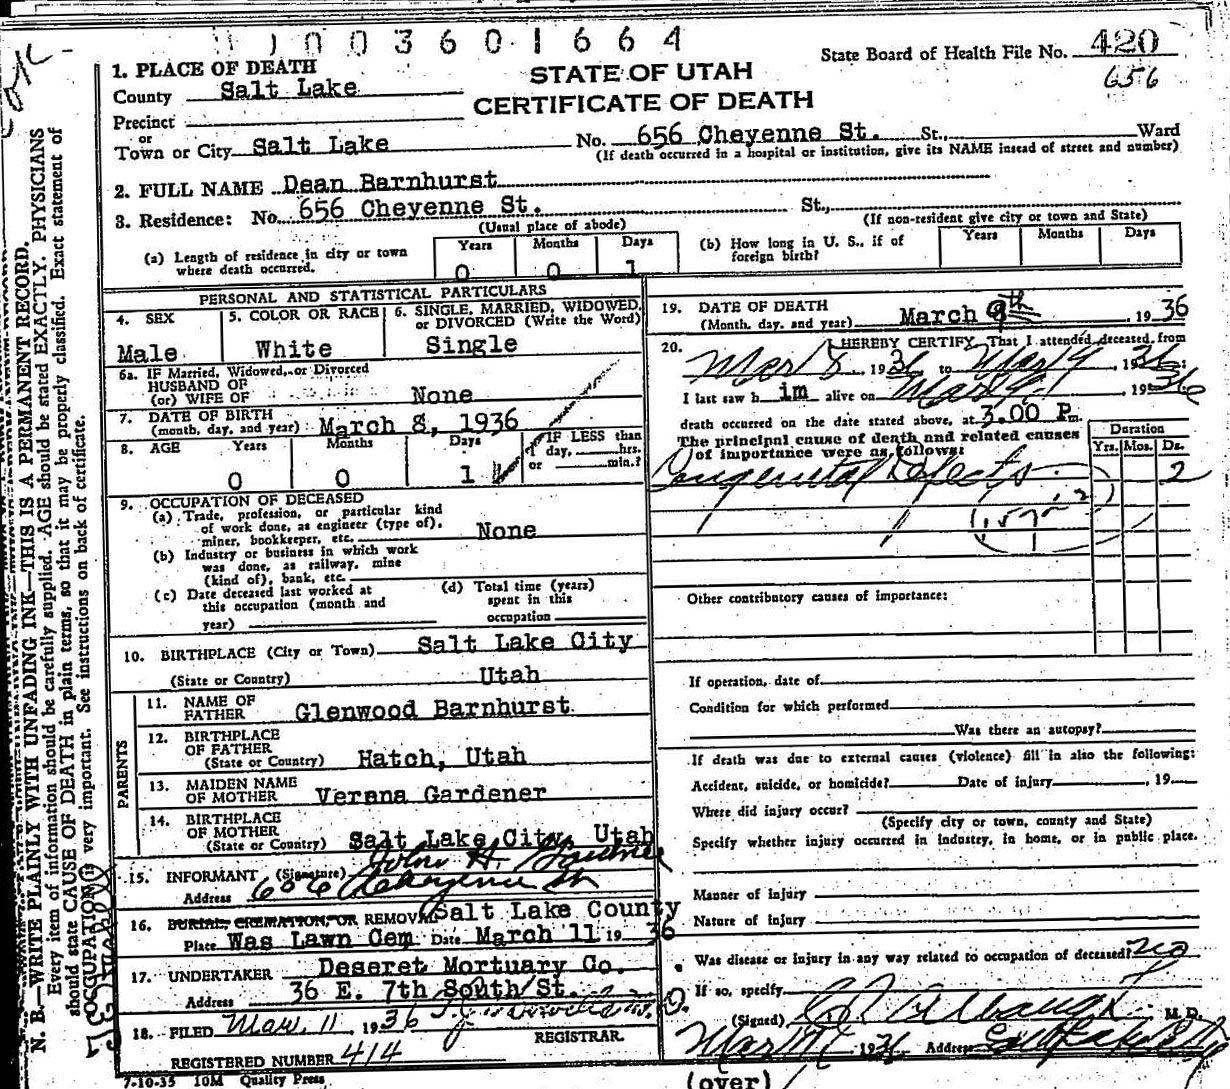 1003601664
State Board of Health File No. 420
656
STATE OF UTAH
CERTIFICATE OF DEATH
1. PLACE OF DEATH
County Salt Lake
Precinct
or
Town or City Salt Lake No. 656 Cheyenne St. St., Ward
(If death occurred in a hospital or institution, give its NAME instead of street and number)
2. FULL NAME Dean Barnhurst
3. Residence: No. 656 Cheyenne St. St.,
(Usual place of abode) (If non-resident give city or town and State)
(a) Length of residence in city or town where death occurred. Years 0 Months 0 Days 1
(b) How long in U. S., if of foreign birth? Years Months Days
PERSONAL AND STATISTICAL PARTICULARS
4. SEX Male
5. COLOR OR RACE White
6. SINGLE, MARRIED, WIDOWED, or DIVORCED (Write the Word) Single
6a. IF Married, Widowed, or Divorced
HUSBAND OF
(or) WIFE OF None
7. DATE OF BIRTH
(month, day, and year) March 8, 1936
8. AGE Years 0 Months 0 Days 1 IF LESS than
1 day, hrs.
or min.?
9. OCCUPATION OF DECEASED
(a) Trade, profession, or particular kind
of work done, as engineer (type of),
miner, bookkeeper, etc. None
(b) Industry or business in which work
was done, as railway, mine
(kind of), bank, etc.
(c) Date deceased last worked at
this occupation (month and
year)
(d) Total time (years)
spent in this
occupation
10. BIRTHPLACE (City or Town) Salt Lake City
(State or Country) Utah
PARENTS
11. NAME OF
FATHER Glenwood Barnhurst
12. BIRTHPLACE
OF FATHER
(State or Country) Hatch, Utah
13. MAIDEN NAME
OF MOTHER Verana Gardener
14. BIRTHPLACE
OF MOTHER
(State or Country) Salt Lake City, Utah
15. INFORMANT (Signature) John H.
Address 656 Cheyenne St
16. BURIAL, CREMATION, OR REMOVAL Salt Lake County
Place Was Lawn Cem Date March 11 1936
17. UNDERTAKER Deseret Mortuary Co.
Address 36 E. 7th South St.
18. FILED Mar. 11, 1936
REGISTRAR.
REGISTERED NUMBER 414
7-10-35 10M Quality Press
19. DATE OF DEATH
(Month, day, and year) March 9th, 1936
20. I HEREBY CERTIFY, That I attended deceased from
Mar 8 1936 to Mar 9, 1936:
I last saw h im alive on Mar 9, 1936
death occurred on the date stated above, at 3.00 P m.
The principal cause of death and related causes
of importance were as follows:
Duration
Yrs. Mos. Ds.
Congenital Defects 2
Other contributory causes of importance:
If operation, date of
Condition for which performed
Was there an autopsy?
If death was due to external causes (violence) fill in also the following:
Accident, suicide, or homicide? Date of injury , 19
Where did injury occur?
(Specify city or town, county and State)
Specify whether injury occurred in industry, in home, or in public place.
Manner of injury
Nature of injury
Was disease or injury in any way related to occupation of deceased? no
If so, specify
(Signed) M. D.
Mar 1936 Address Salt Lake City
(over)
N. B.—WRITE PLAINLY WITH UNFADING INK—THIS IS A PERMANENT RECORD.
Every item of information should be carefully supplied. AGE should be stated EXACTLY. PHYSICIANS
should state CAUSE OF DEATH in plain terms, so that it may be properly classified. Exact statement of
OCCUPATION is very important. See instructions on back of certificate.